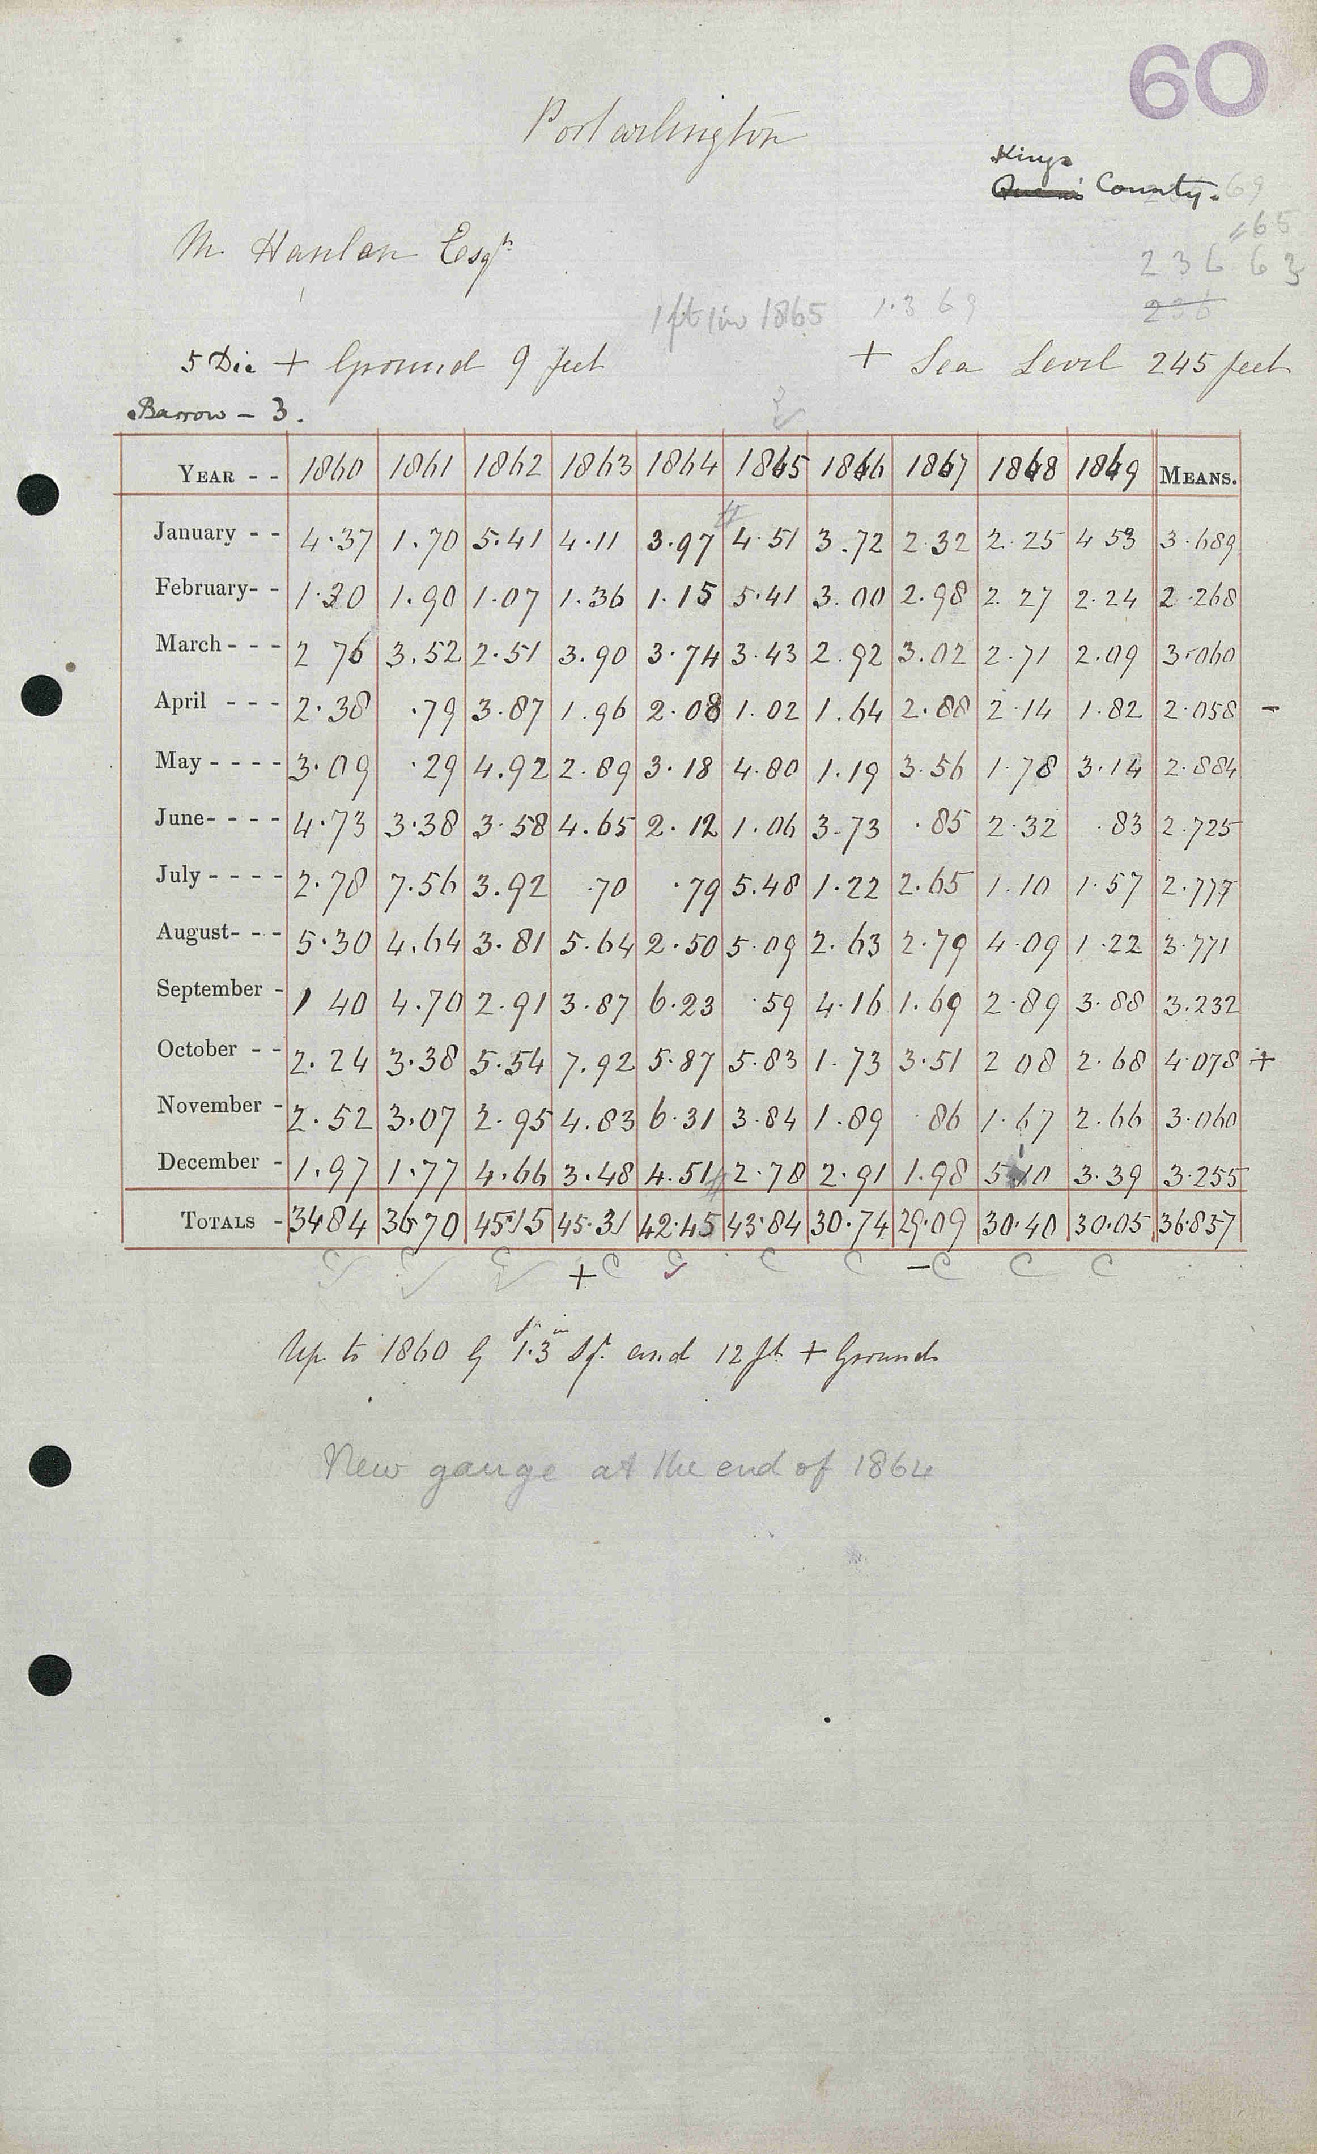 60
Portarlington
Kings
Queens County. 69
65
M Hanlon Esqr
236 63
1 ft 1 in 1865 1.3 69
236
5 Die + Ground 9 feet + Sea Level 245 feet
Barrow - 3.
YEAR - - 1860 1861 1862 1863 1864 1865 1866 1867 1868 1869 MEANS.
January - - 4.37 1.70 5.41 4.11 3.97 4.51 3.72 2.32 2.25 4 53 3.689
February- - 1.30 1.90 1.07 1.36 1.15 5.41 3.00 2.98 2.27 2.24 2.268
March - - - 2 76 3.52 2.51 3.90 3.74 3.43 2.92 3.02 2.71 2.09 3.060
April - - - 2.38 .79 3.87 1.96 2.08 1.02 1.64 2.88 2.14 1.82 2.058 -
May - - - - 3.09 .29 4.92 2.89 3.18 4.80 1.19 3.56 1.78 3.14 2.884
June- - - - 4.73 3.38 3.58 4.65 2.12 1.06 3.73 .85 2.32 .83 2.725
July - - - - 2.78 7.56 3.92 .70 .79 5.48 1.22 2.65 1.10 1.57 2.777
August- - - 5.30 4.64 3.81 5.64 2.50 5.09 2.63 2.79 4.09 1.22 3.771
September - 1 40 4.70 2.91 3.87 6.23 .59 4.16 1.69 2.89 3.88 3.232
October - - 2.24 3.38 5.54 7.92 5.87 5.83 1.73 3.51 2 08 2.68 4.078 +
November - 2.52 3.07 2.95 4.83 6.31 3.84 1.89 86 1.67 2.66 3.060
December - 1.97 1.77 4.66 3.48 4.51 2.78 2.91 1.98 5.10 3.39 3.255
TOTALS - 34 84 36.70 45.15 45.31 42.45 43.84 30.74 29.09 30.40 30.05 36.857
+ C C C - C C C
Up to 1860 G 1.3 Sq. and 12 ft + Ground
New gauge at the end of 1864